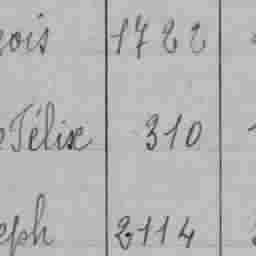 çois 1722
Félix 310
eph 2114